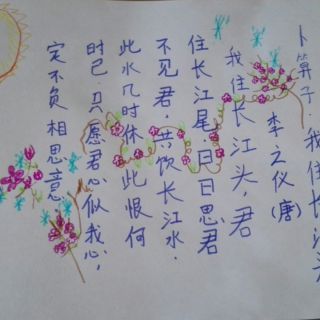 卜算子·我住长江头
李之仪（唐）
我住长江头，君
住长江尾。日日思君
不见君，共饮长江水。
此水几时休，此恨何
时已。只愿君心似我心，
定不负相思意。